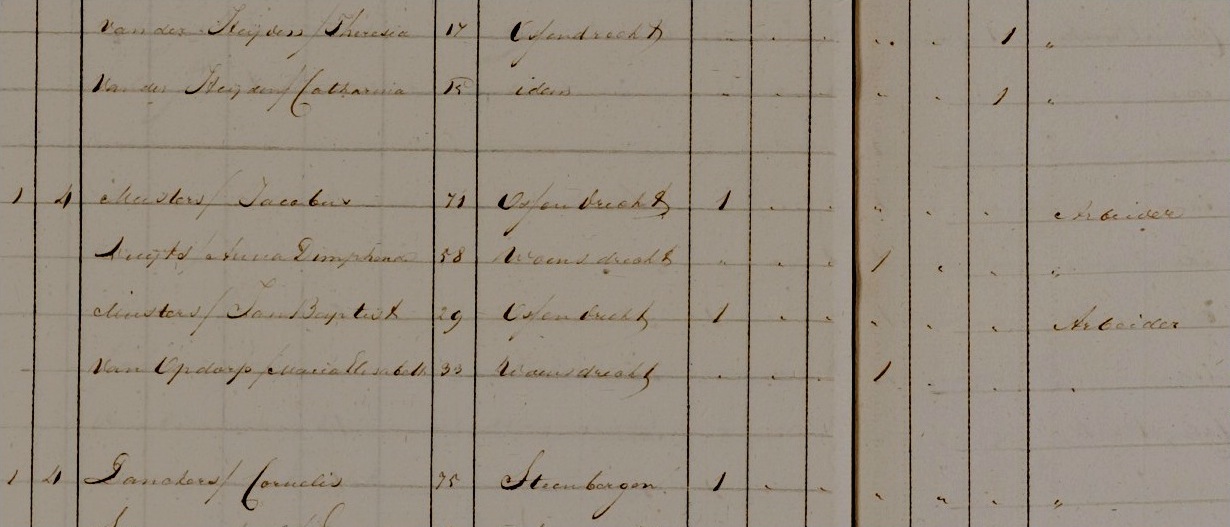 van der Heijden / Theresia 17 Ossendrecht " " " " " 1 "
Van der Heijden / Catharina 15 idem " " " " " 1 "
1 4 Meesters / Jacobus 71 Ossendrecht 1 " " " " " Arbeider
Anna Dimphena 58 Woensdrecht " " " 1 " " "
Meesters / Jan Baptist 29 Ossendrecht 1 " " " " " Arbeider
Van Opdorp / Maria Elisabeth 33 Woensdrecht " " " 1 " " "
1 4 Danckers / Cornelis 75 Steenbergen 1 " " " " " "